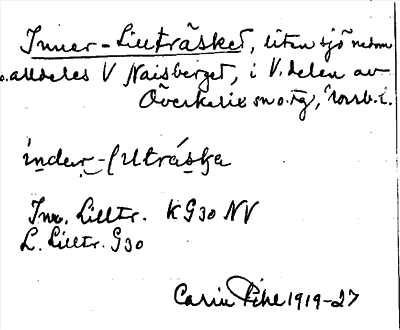 Inner-Lillträsket, liten sjö nedom
o. alldeles V Naisberget, i V. delen av
Överkalix sn o. tg, Norrb. l.
ìnder-lıltrá̀ska
Inr. Lilltr. KG30 NV
L. Lilltr. G30
Carin Pihl 1919-27